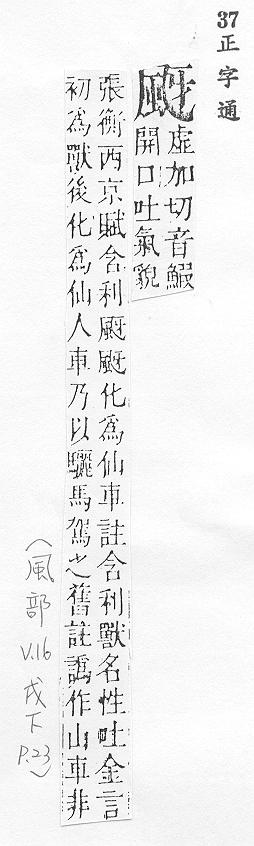 37正字通
颬虛加切音鰕
開口吐氣貌
張衡西京賦含利颬颬化為仙車註含利獸名性吐金言
初為獸後化為仙人車乃以驪馬駕之舊註譌作山車非
(風部 V.16 戌下 P.23)